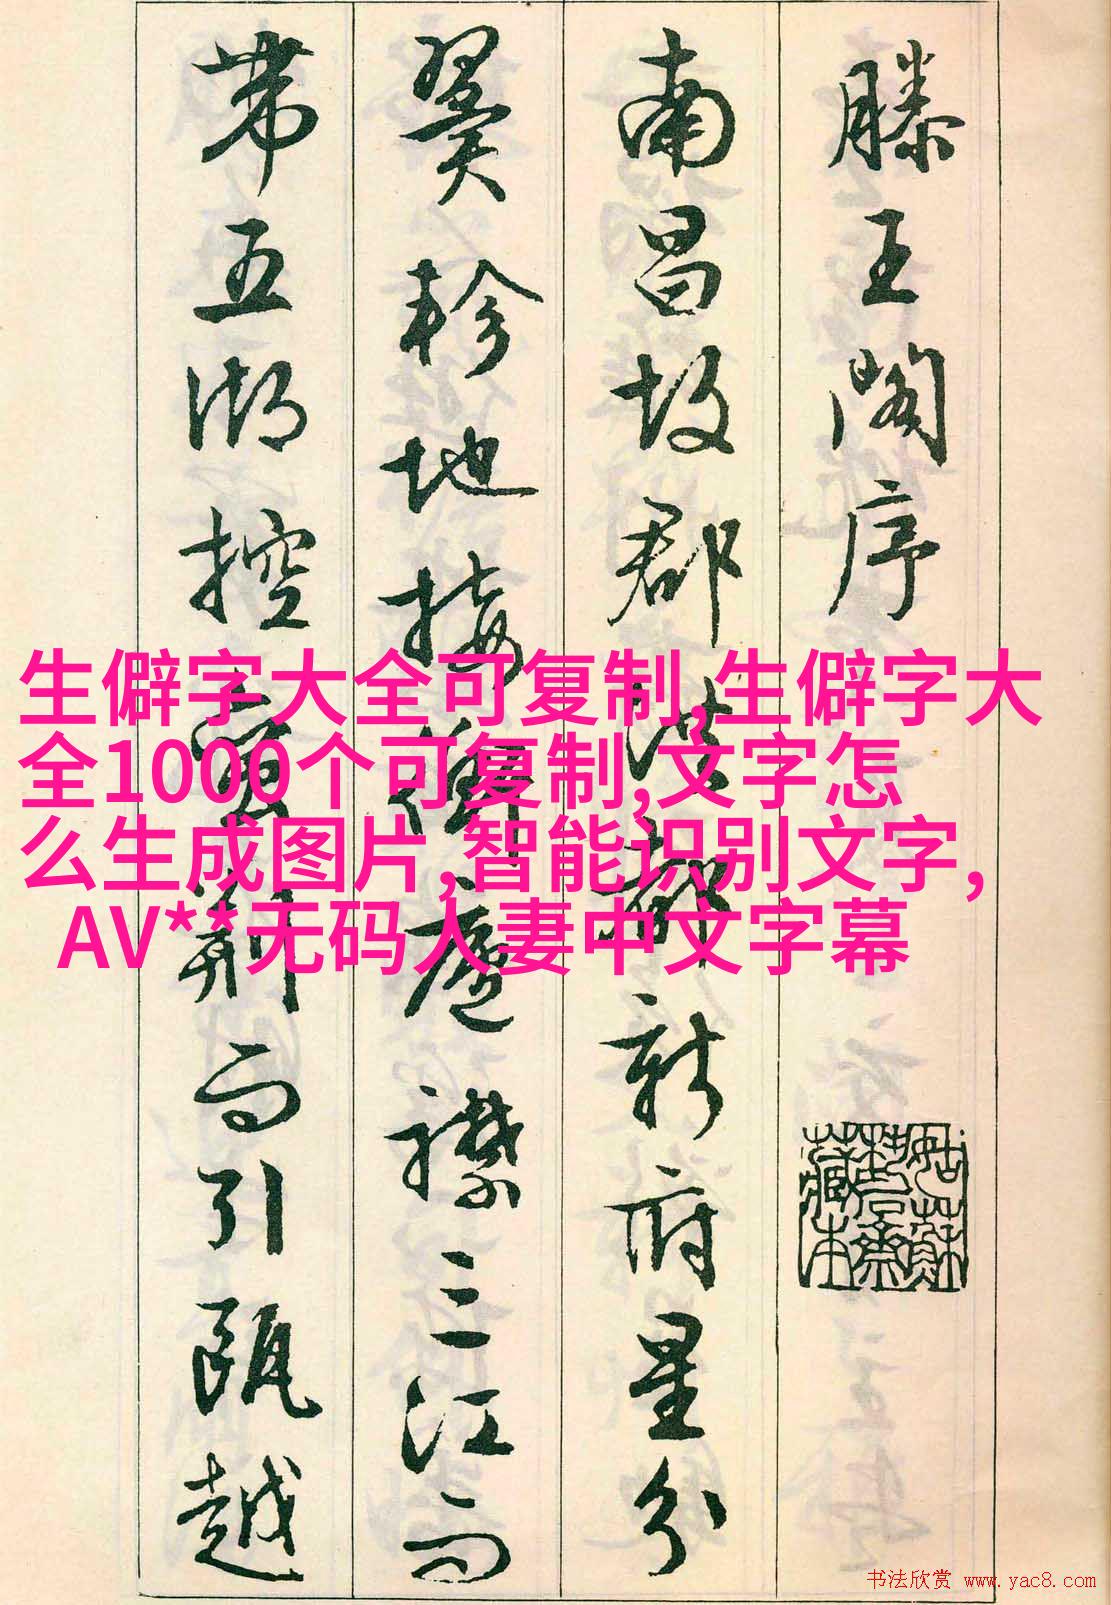 滕王閣序
南昌故郡洪都新府星分
翼軫地接衡廬襟三江而
帶五湖控蠻荆而引甌越
生僻字大全可复制,生僻字大
全1000个可复制,文字怎
么生成图片,智能识别文字,
AV**无码人妻中文字幕
姑蘇
藏本
书法欣赏 www.yac8.com